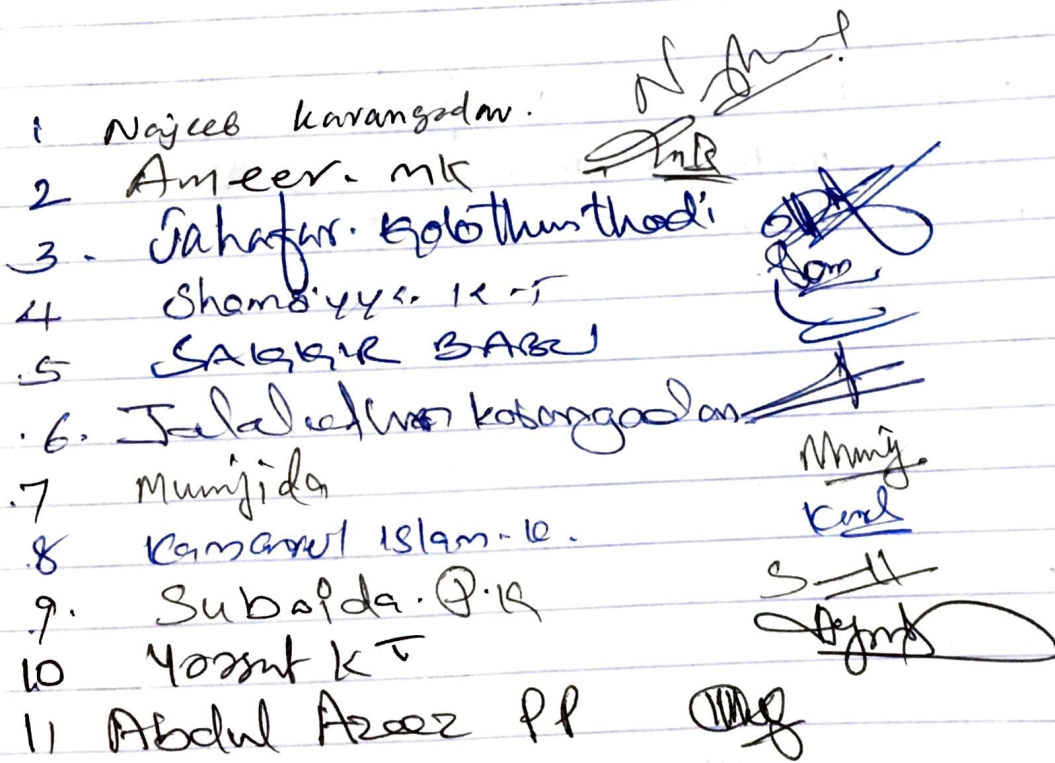 1 Najeeb Karangadan.
2 Ameer. MK
3. Jahafar. Kolothumthodi
4 Shamsiyya. K-T
5 SAKKIR BABU
6. Jalaludheen kotangadan
7 Mumjida
8 Kamarul islam. K.
9. Subaida. P.K
10 Yoosuf K T
11 Abdul Azeez PP